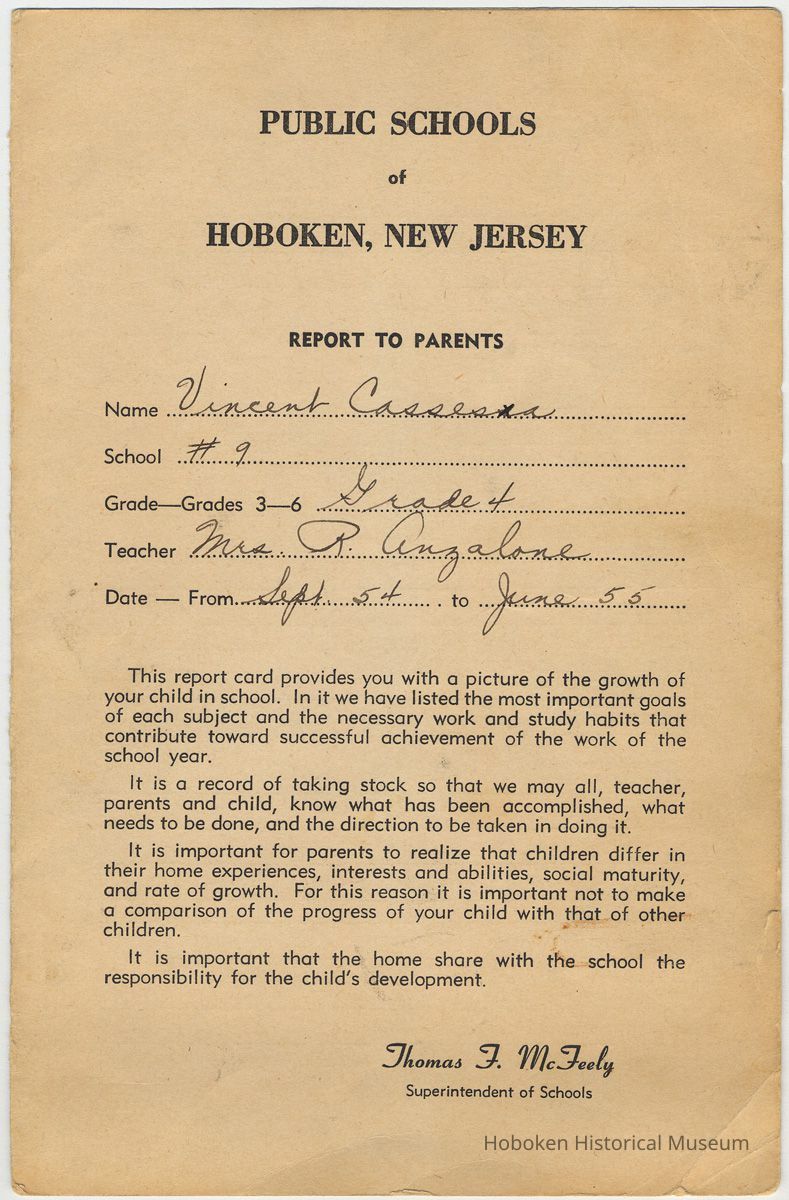 PUBLIC SCHOOLS
of
HOBOKEN, NEW JERSEY
REPORT TO PARENTS
Name Vincent Cassesa
School # 9
Grade—Grades 3—6 Grade 4
Teacher Mrs. R. Anzalone
Date — From Sept. 54 to June 55
This report card provides you with a picture of the growth of
your child in school. In it we have listed the most important goals
of each subject and the necessary work and study habits that
contribute toward successful achievement of the work of the
school year.
It is a record of taking stock so that we may all, teacher,
parents and child, know what has been accomplished, what
needs to be done, and the direction to be taken in doing it.
It is important for parents to realize that children differ in
their home experiences, interests and abilities, social maturity,
and rate of growth. For this reason it is important not to make
a comparison of the progress of your child with that of other
children.
It is important that the home share with the school the
responsibility for the child's development.
Thomas F. McFeely
Superintendent of Schools
Hoboken Historical Museum